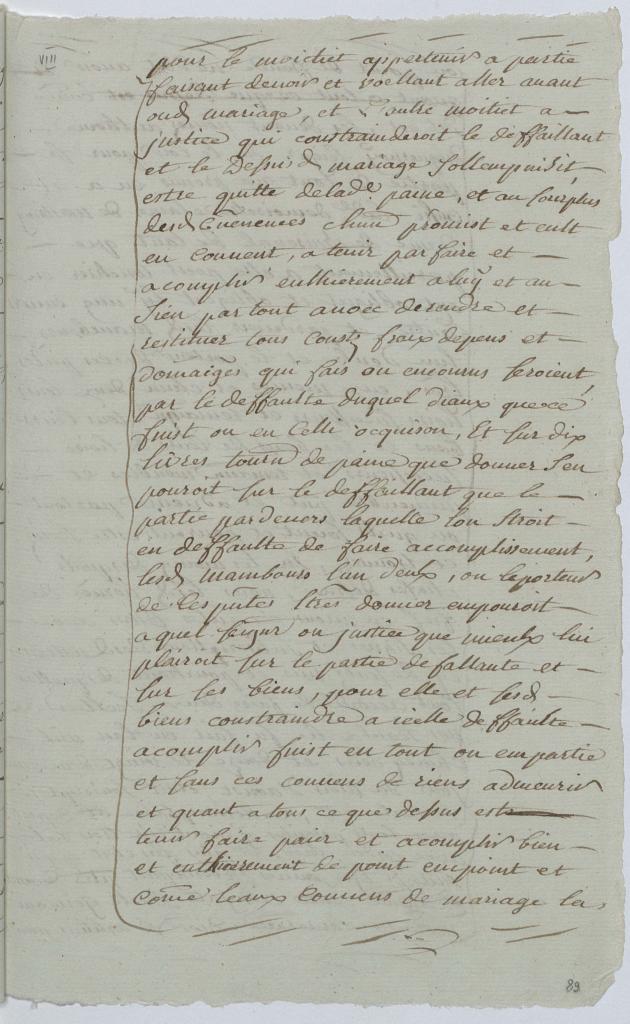 VIII
pour le moictiet appertenir a partie
faisant devoir et voellant aller avant
oud mariage, et l'autre moitiet a —
justice qui constrainderoit le deffaillant
et le Dessusd mariage sollempnisit —
estre quitte delade paine, et au sourplus
desd Cnenences chun promist et eult
en convent, a tenir parfaire et —
acomplir enthierement a luy et au —
sien partout avoec de rendre et —
restituer tous Coustz fraix depens et —
domaiges qui fais ou encourus seroient,
par le deffaulte duquel diaux que ce
fuist ou en Celli ocquison, Et sur dix
livres tourn de paine que donner sen
pouroit sur le deffaillant que le —
partie pardevers laquelle lon Stroit —
en deffaulte de faire accomplissement,
lesd mambours l'un deulx, ou le porteur
de Ces pntes lres donner empouroit —
a quel Segnr ou justice que mieulx lui
plairoit sur le partie defallante et —
sur ses biens, pour elle et sesd —
biens constraindre a icelle deffaulte —
acomplir fuist en tout ou em partie
et sans ces convens de riens admenrir
et quant a tous ce que dessus est
tenir faire paier et acomplir bien —
et enthierement de point empoint et
come leaux Convens de mariage la,
89